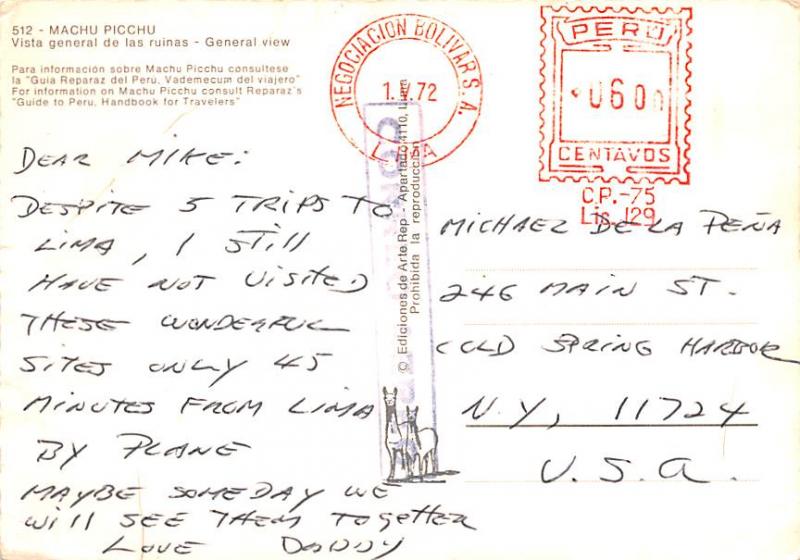 512 - MACHU PICCHU
Vista general de las ruinas - General view
Para información sobre Machu Picchu consultese
la "Guia Reparaz del Peru, Vademecum del viajero"
For information on Machu Picchu consult Reparaz's
"Guide to Peru, Handbook for Travelers"
DEAR MIKE:
DESPITE 5 TRIPS TO
LIMA, I STILL
HAVE NOT VISITED
THESE WONDERFUL
SITES ONLY 45
MINUTES FROM LIMA
BY PLANE
MAYBE SOMEDAY WE
WILL SEE THEM TOGETHER
LOVE DADDY
© Ediciones de Arte Rep - Apartado 4110, Lima
Prohibida la reproducción
NEGOCIACION BOLIVAR S.A.
LIMA
PERU
0600
CENTAVOS
C.P.-75
Lic. 129
MICHAEL DE LA PEÑA
246 MAIN ST.
COLD SPRING HARBOR
N.Y, 11724
U.S.A.